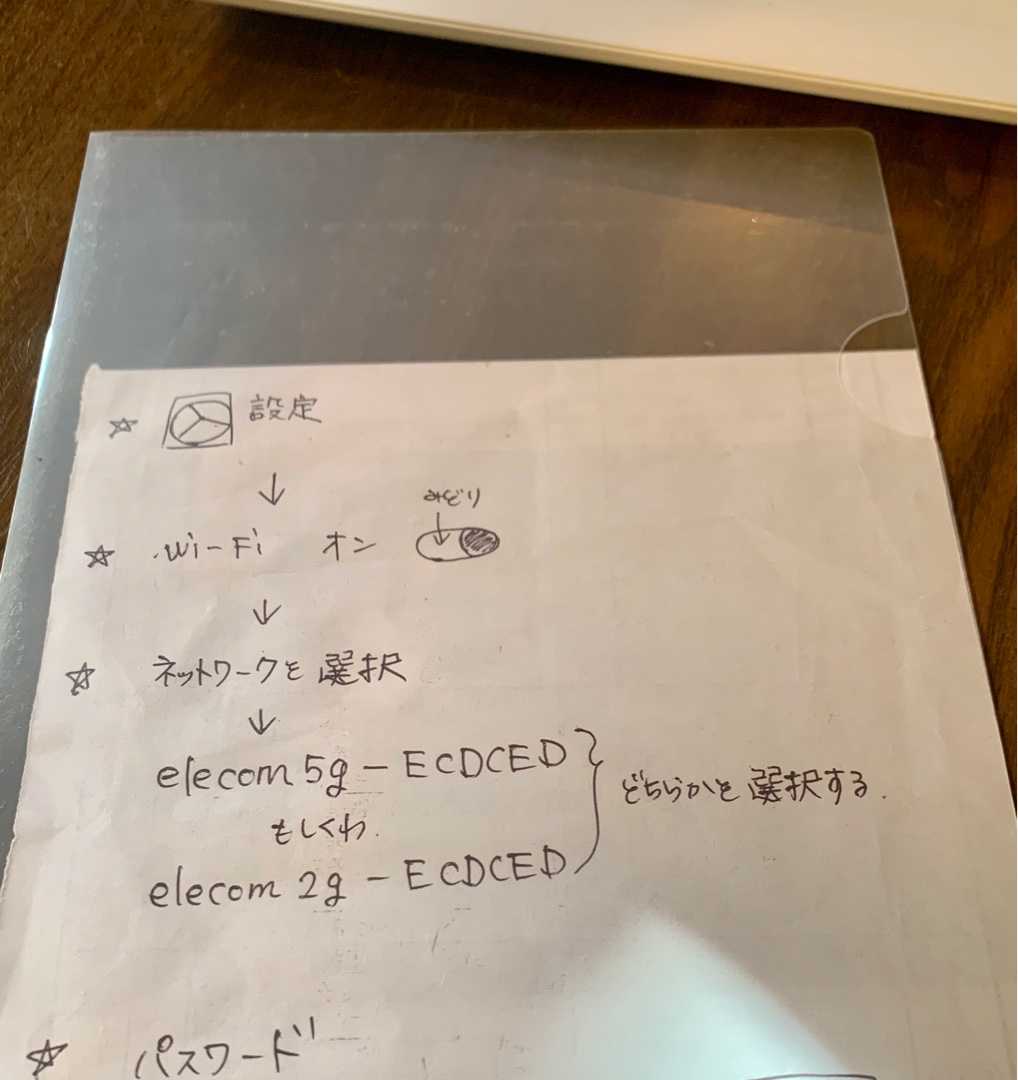 ☆ 設定
↓
☆ Wi-Fi オン みどり
↓
☆ ネットワークを選択
↓
elecom5g-ECDCED
もしくわ.
elecom2g-ECDCED
どちらかを選択する.
☆ パスワード